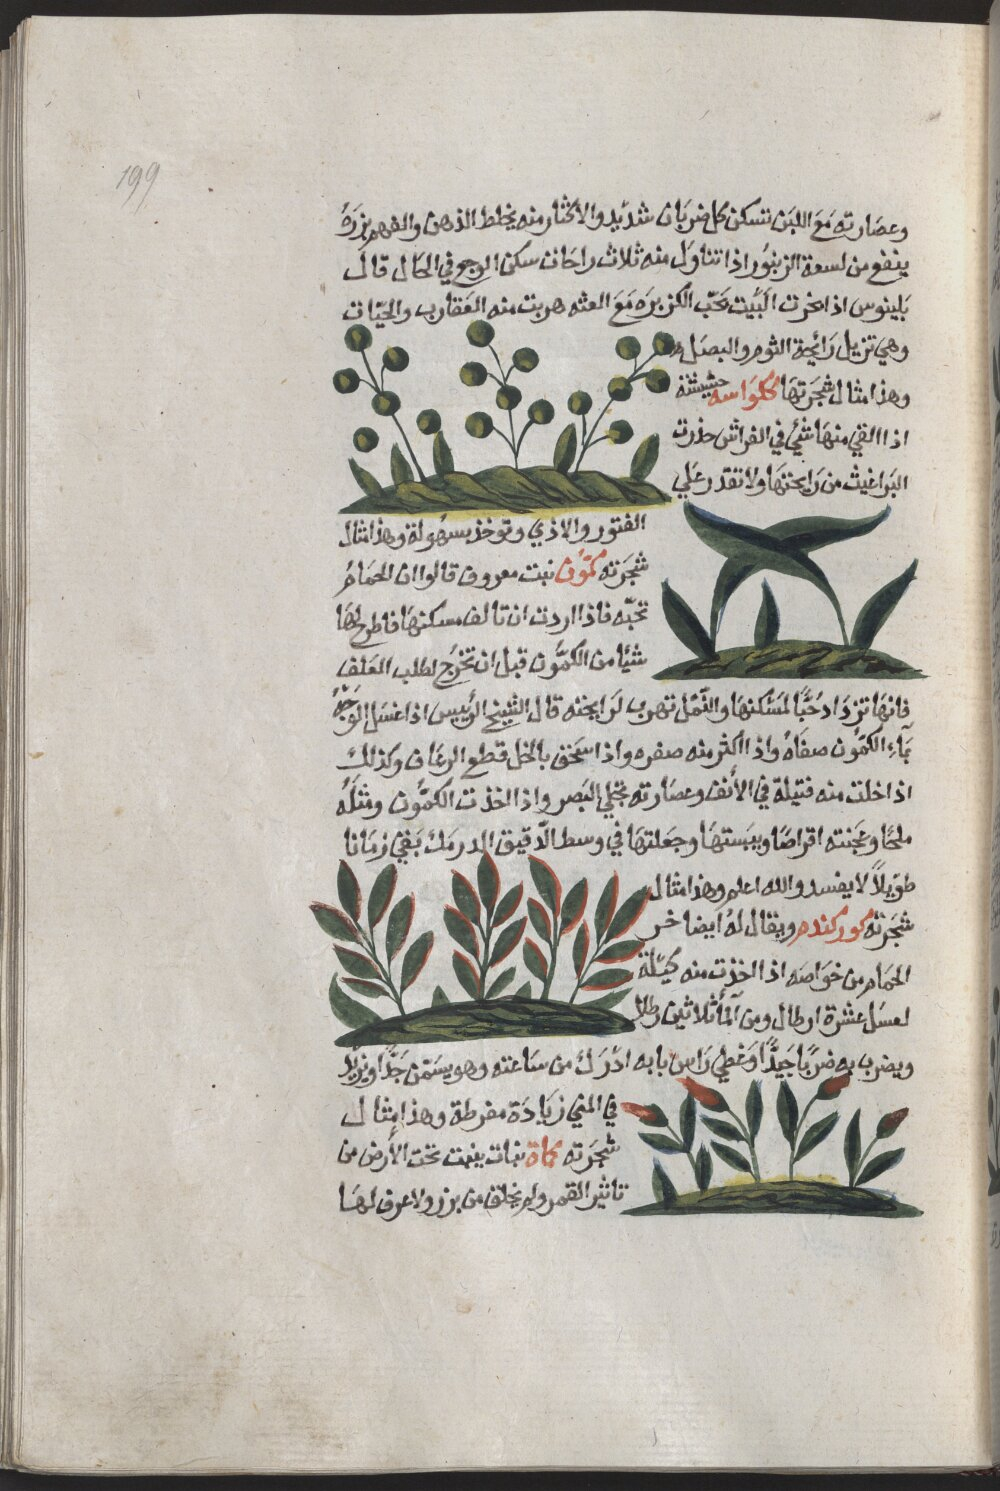 199
وعصارته مَعَ اللبن تسكن كل ضربان شديد والاكثار منه يخلط الذهن والفهم بزره
ينفع من لسعة الزنبور اذا تناول منه ثلاث راحات سكن الوجع في الحال قال
بلينوس اذا بخرت البيت بحَب الكزبره مَعَ العنه هربت منه العقارب والحيّات
وهي تزيل رَائحة الثوم والبصَل
وهذا مثال شجرتها كلواسه حشيشة
اذا القي منها شئ في الفراش حذرت
البراغيث من رَايحتها ولا تقدر عَلي
الفتور والاذي وتوخذ بسهولة وهذا مثال
شجرته كمّون نبت معروف قالوا ان الحمَام
تحبّه فاذا اردت ان تالف مسكنها فاطرح لهَا
شيًا من الكمّون قبل ان تخرُج لطلب العَلف
فانها تزدَاد حُبًّا لمسْكنها والنّمل تهرب لرايحته قال الشيخ الرئيس اذا غسَل الوَجْه
بمآء الكمّون صفاهُ واذا اكثر منه صفره واذا اسحق بالخل قطع الرعَاف وكذلك
اذا خلت منه فتيلة في الأنف وعصَارته تجلي البَصر واذا اخذت الكمّون ومثلَهُ
ملحًا وعجَنته اقراصًا ويبستها وجعلتهَا في وسط الدّقيق الدرمَك بَقي زمَانا
طوَيلاً لا يفسد والله اعلم وهذا مثال
شجَرته كوركندم ويقال لهُ ايضا خر
الحمَام من خوَاصه اذا اخذت منه كيّلة
لعسَل عشرة ارطال ومن المآ ثلاثين رطلا
ويضرب به ضربًا جَيدًّا وَغطي رَاس بابه ادرَك من سَاعته وهو يسَمن جَدًّا ويزيد
في المني زيَادَة مفرطة وهذا مثال
شجرته كماة نبات ينبت تحت الأرض من
تاثير القمر ولم يخلق من بزر ولا عرق لهَا